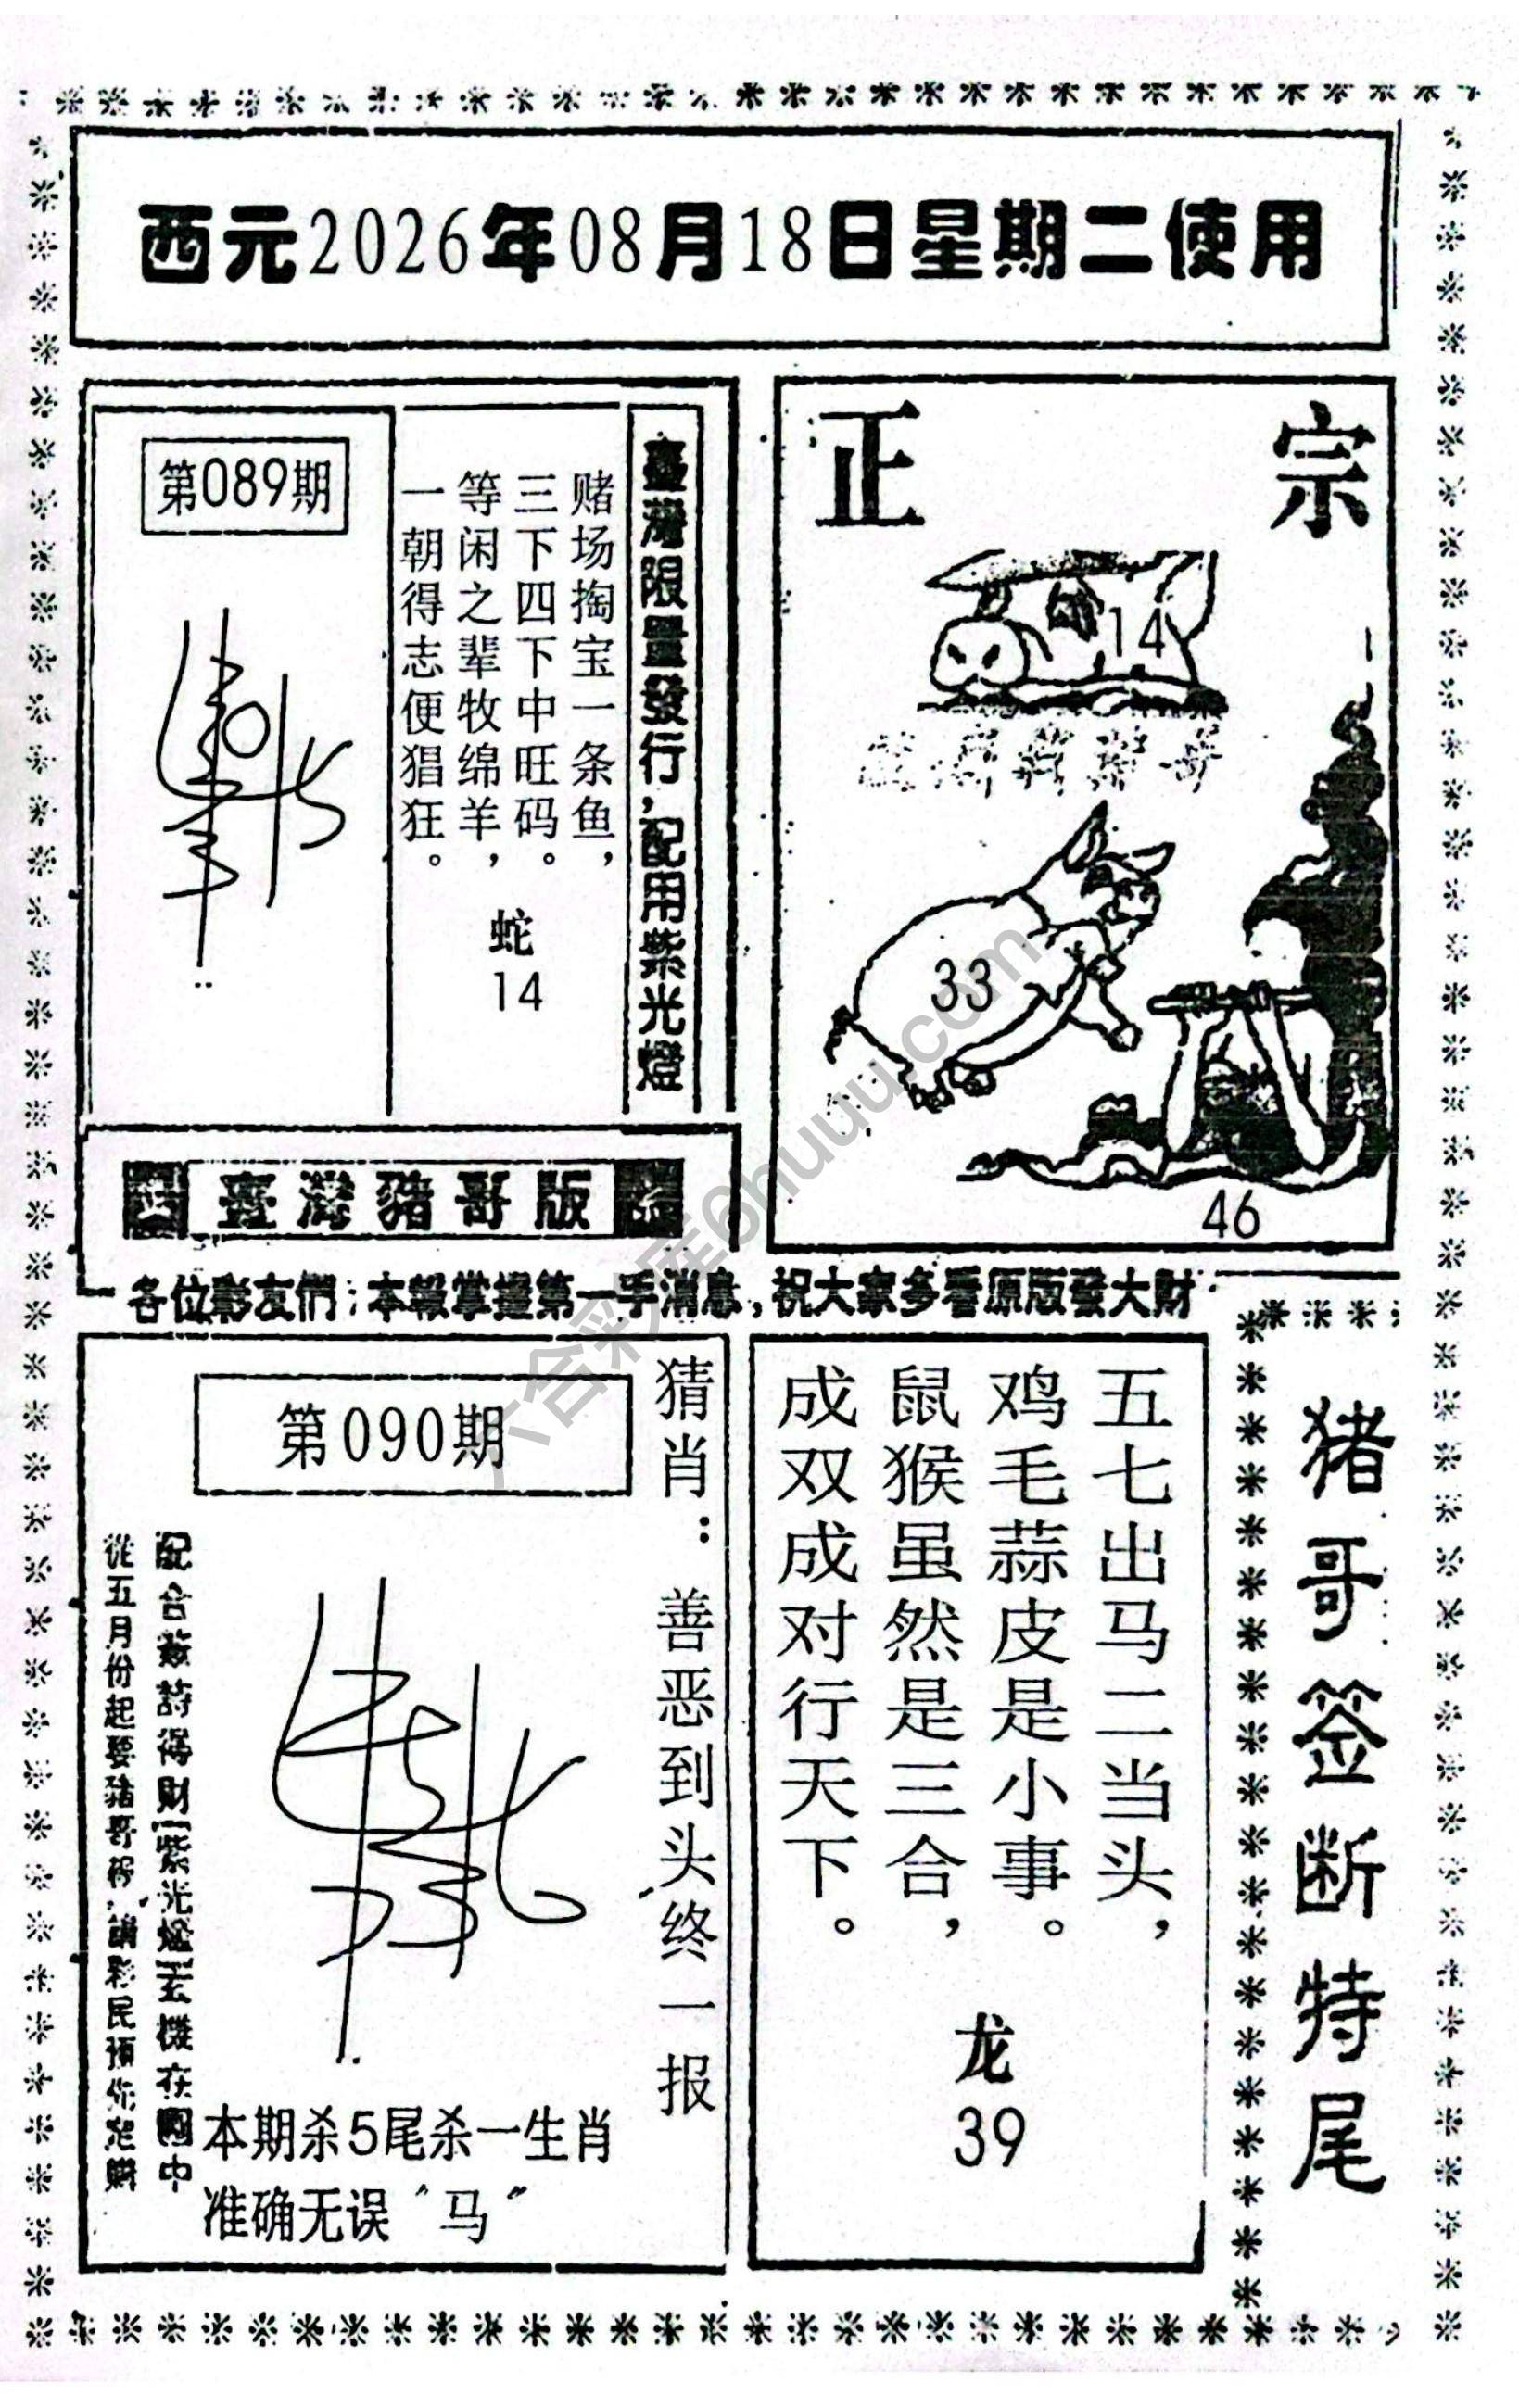 西元2026年08月18日星期二使用
第089期
臺灣限量發行，配用紫光燈
赌场掏宝一条鱼，
三下四下中旺码。
等闲之辈牧绵羊，
一朝得志便猖狂。
蛇
14
正宗
14
33
46
臺灣豬哥版
各位彩友們：本報掌握第一手消息，祝大家多看原版發大財
第090期
猜肖：善恶到头终一报
配合藏詩得財紫光燈玄機在圖中
從五月份起要豬哥報，請彩民預你定購
本期杀5尾杀一生肖
准确无误“马”
五七出马二当头，
鸡毛蒜皮是小事。
鼠猴虽然是三合，
成双成对行天下。
龙
39
猪哥签断特尾
六合彩库6huuu.com